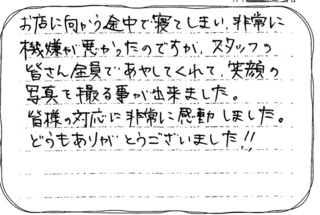 お店に向かう途中で寝てしまい、非常に
機嫌が悪かったのですが、スタッフの
皆さん全員であやしてくれて、笑顔の
写真を撮る事が出来ました。
皆様の対応に非常に感動しました。
どうもありがとうございました!!